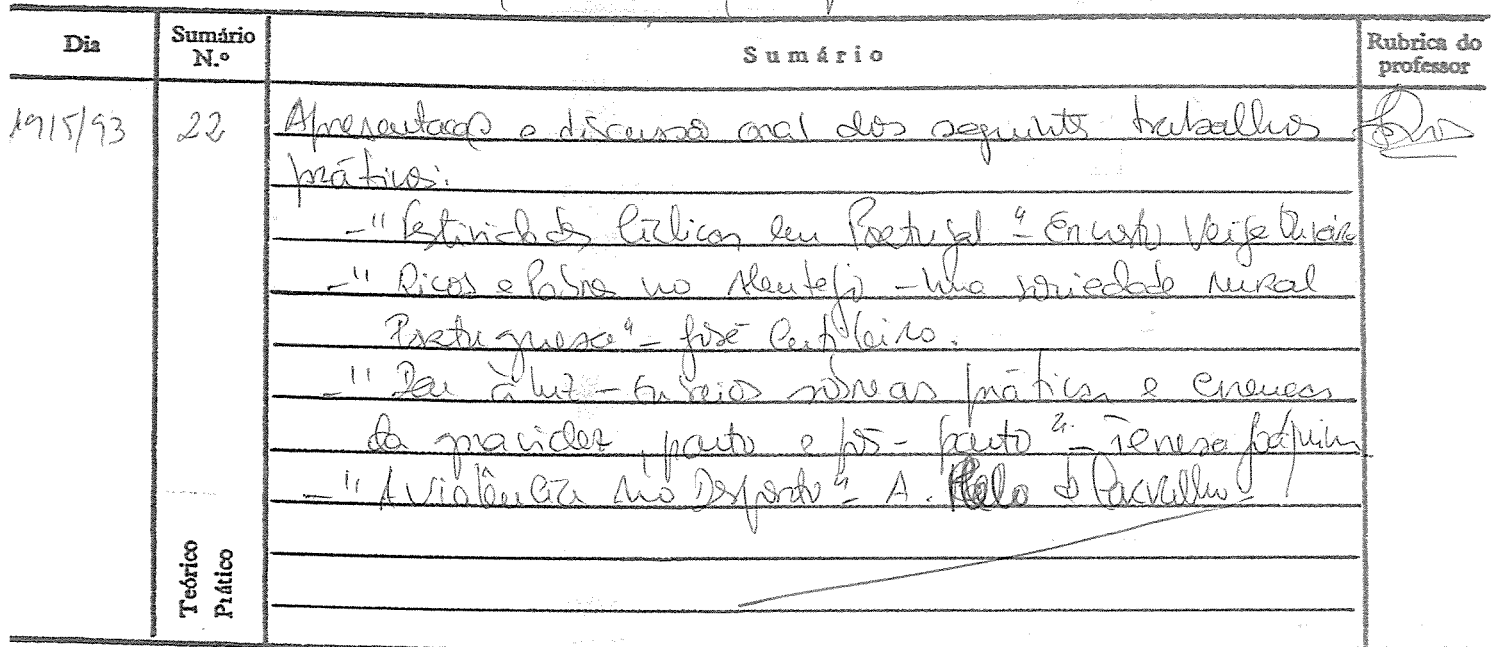 Dia Sumário N.º Sumário Rubrica do professor
19/5/93 22 Apresentação e discussão oral dos seguintes trabalhos
práticos:
- "Festividades Cíclicas em Portugal" - Ernesto Veiga Oliveira
- "Ricos e Pobres no Alentejo - Uma sociedade rural
Portuguesa" - José Cutileiro.
- "Dar à luz - Ensaios sobre as práticas e crenças
da gravidez, parto e pós-parto" - Teresa Joaquim
- "A Violência no Desporto" - A. Melo de Carvalho
Teórico
Prático